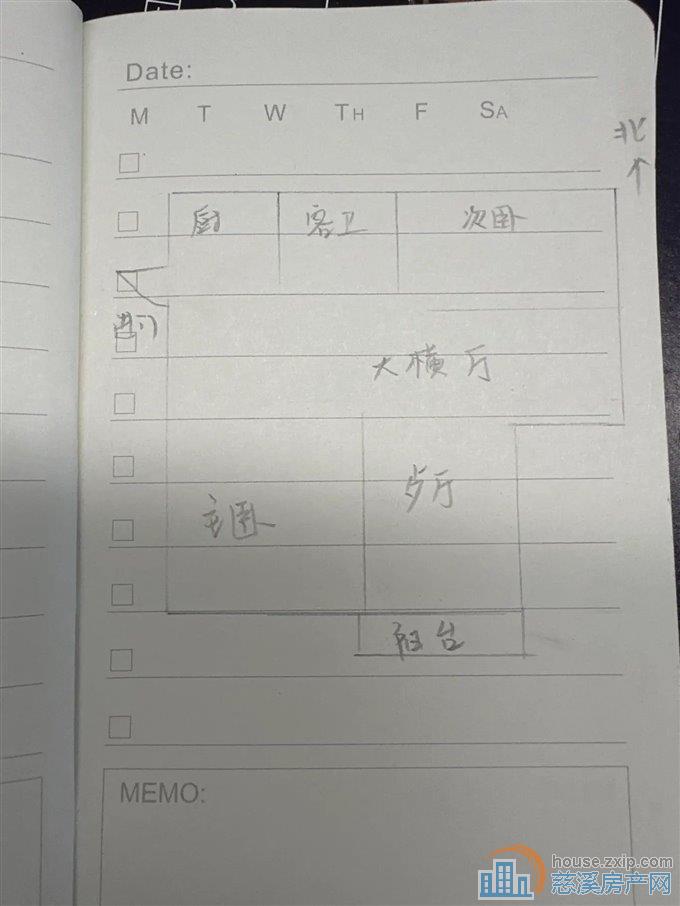 Date:
M T W TH F SA
北
厨 客卫 次卧
进门
大横厅
主卧
阳台
MEMO:
house.zxip.com
慈溪房产网